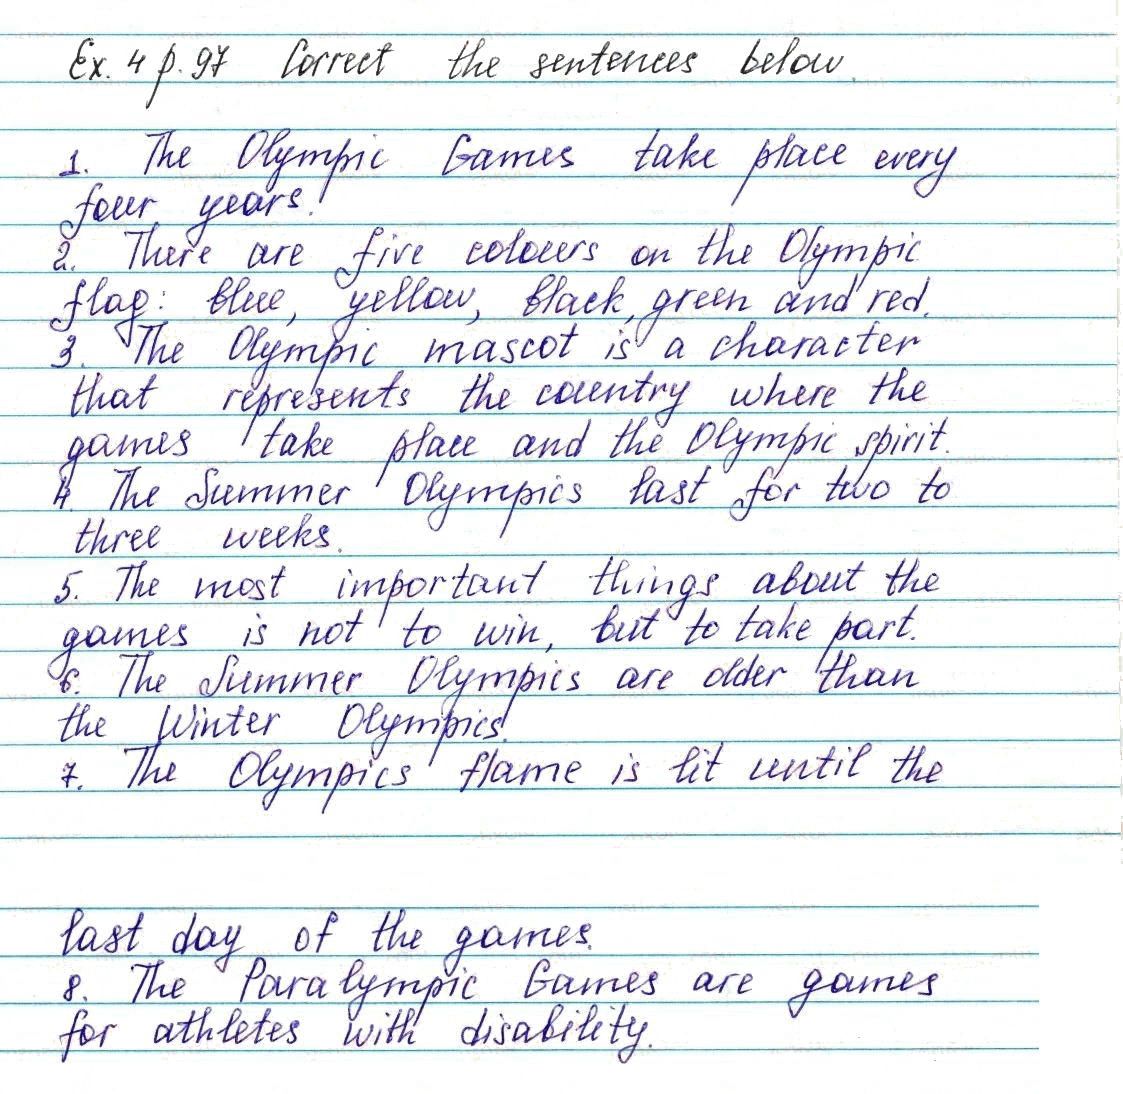 Ex. 4 p. 97 Correct the sentences below.
1. The Olympic Games take place every
four years.
2. There are five colours on the Olympic
flag: blue, yellow, black, green and red.
3. The Olympic mascot is a character
that represents the country where the
games take place and the Olympic spirit.
4. The Summer Olympics last for two to
three weeks.
5. The most important things about the
games is not to win, but to take part.
6. The Summer Olympics are older than
the Winter Olympics.
7. The Olympics flame is lit until the
last day of the games.
8. The Paralympic Games are games
for athletes with disability.